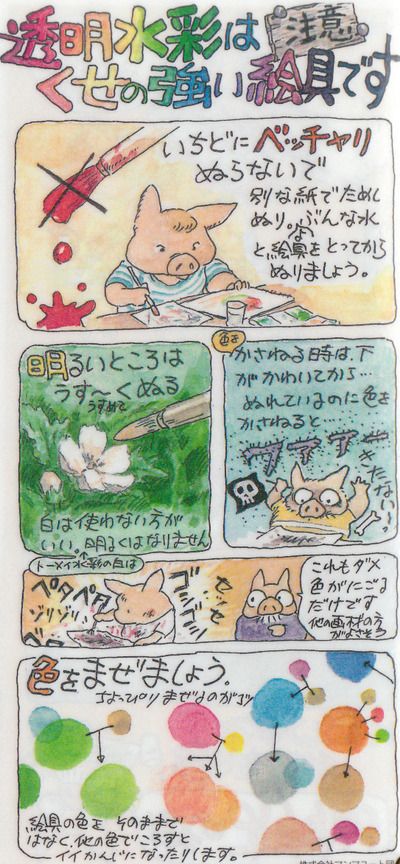 透明水彩は
注意
くせの強い絵具です
いちどにベッチャリ
ぬらないで
別な紙でためし
ぬり。よぶんな水
と絵具をとってから
ぬりましょう。
明るいところは
うすーくぬる
うすめて
白は使わない方が
いい 明るくはなりません
色を
かさねる時は、下
がかわいてから…
ぬれているのに色を
かさねると……
ワアアアー
きたない〜
トーメイ水彩の白は
ペタペタ
ゾリゾリ
ゴシゴシ
セッセ
これもダメ
色がにごる
だけです
他の画材の方
がよさそう
色をまぜましょう。
ちょっぴりまぜるのがコツ
絵具の色を そのままで
はなく、他の色でころすと
イイかんじになったりします